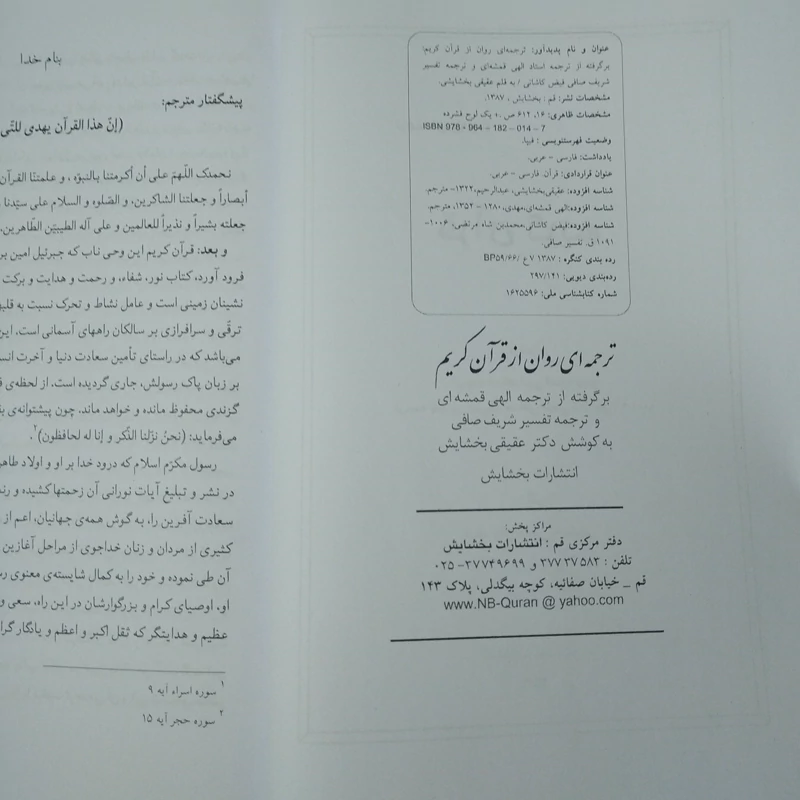 عنوان و نام پدیدآور: ترجمه‌ای روان از قرآن کریم:
برگرفته از ترجمه استاد الهی قمشه‌ای و ترجمه تفسیر
شریف صافی فیض کاشانی / به قلم عقیقی بخشایشی.
مشخصات نشر: قم : بخشایش ، ۱۳۸۷.
مشخصات ظاهری: ۱۶، ۶۱۲ ص .+ یک لوح فشرده
ISBN 978 - 964 - 182 - 014 - 7
وضعیت فهرستنویسی : فیپا.
یادداشت: فارسی - عربی.
عنوان قراردادی: قرآن. فارسی - عربی.
شناسه افزوده: عقیقی‌بخشایشی، عبدالرحیم،۱۳۲۲- مترجم.
شناسه افزوده:الهی قمشه‌ای،مهدی،۱۲۸۰ - ۱۳۵۲، مترجم.
شناسه افزوده:فیض کاشانی،محمدبن شاه مرتضی، ۱۰۰۶-
۱۰۹۱ ق. تفسیر صافی.
رده بندی کنگره : ۱۳۸۷ ۷ع /۶۶/BP۵۹
رده‌بندی دیویی: ۲۹۷/۱۴۱
شماره کتابشناسی ملی: ۱۶۲۵۵۹۶
ترجمه ای روان از قرآن کریم
برگرفته از ترجمه الهی قمشه ای
و ترجمه تفسیر شریف صافی
به کوشش دکتر عقیقی بخشایش
انتشارات بخشایش
مراکز پخش:
دفتر مرکزی قم : انتشارات بخشایش
تلفن : ۳۷۷۳۷۵۸۳ و ۳۷۷۴۹۶۹۹- ۰۲۵
قم _ خیابان صفائیه، کوچه بیگدلی، پلاک ۱۴۳
www.NB-Quran @ yahoo.com
بنام خدا
پیشگفتار مترجم:
(إنّ هذا القرآن یهدی للتّی
نحمدک اللّهمّ علی أن أکرمتنا بالنبوّه ، و علمتنا القرآن
أبصاراً و جعلتنا الشاکرین، و الصّلوه و السلام علی سیّدنا
جعلته بشیراً و نذیراً للعالمین و علی آله الطیبیّن الطّاهرین.
و بعد: قرآن کریم این وحی ناب که جبرئیل امین بر
فرود آورد، کتاب نور، شفاء، و رحمت و هدایت و برکت
نشینان زمینی است و عامل نشاط و تحرک نسبت به
ترقّی و سرافرازی بر سالکان راههای آسمانی است. این
می‌باشد که در راستای تأمین سعادت دنیا و آخرت
بر زبان پاک رسولش، جاری گردیده است. از لحظه‌ی
گزندی محفوظ مانده و خواهد ماند. چون پیشتوانه‌ی
می‌فرماید: (نحنُ نزّلنا الذّکر و إنا له لحافظون)۲.
رسول مکرّم اسلام که درود خدا بر او و اولاد
در نشر و تبلیغ آیات نورانی آن زحمتها کشیده و
سعادت آفرین را، به گوش همه‌ی جهانیان، اعم از
کثیری از مردان و زنان خداجوی از مراحل آغازین
آن طی نموده و خود را به کمال شایسته‌ی معنوی
او. اوصیای کرام و بزرگوارشان در این راه، سعی و
عظیم و هدایتگر که ثقل اکبر و اعظم و یادگار
۱ سوره اسراء آیه ۹
۲ سوره حجر آیه ۱۵